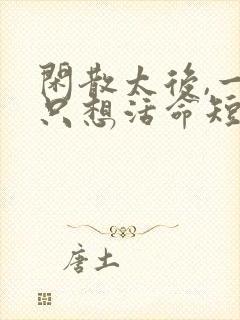 閑散太後,一
只想活命短
唐土